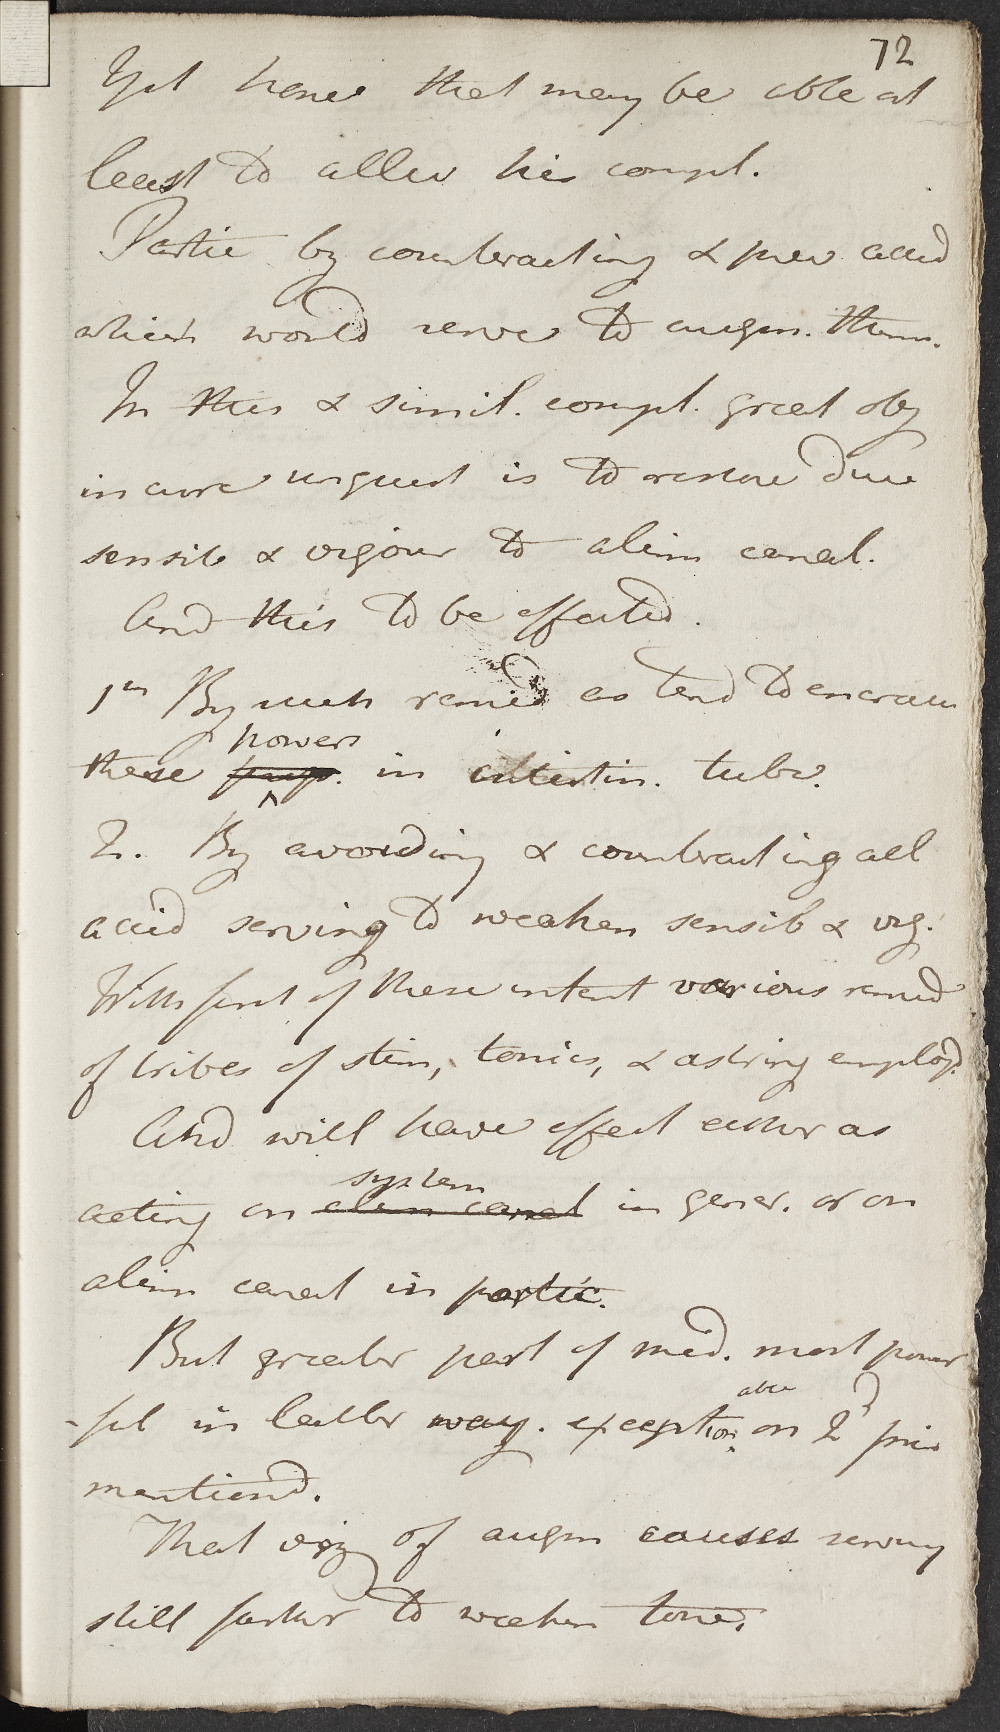 72
Yet hence that may be able at
least to allev his compl.
Partic by counteracting & prev accid
which would serve to augm. them.
In this & simil. compl. great obj
in cure urquest is to restore due
sensib & vigour to alim canal.
And this to be effected.
1st By such remed as tend to encrease
powers
these in intestin. tube.
2. By avoiding & counteracting all
accid serving to weaken sensib & vig.
With first of these intent various remed
of tribes of stim, tonics, & astring employd.
And will have effect either as
system
acting on alim canal in gener. or on
alim canal in partic.
But greater part of med. most power
-ful in latter way. exception on 2d prin
mentiond.
That viz of augm causes serving
still farther to weaken tone.